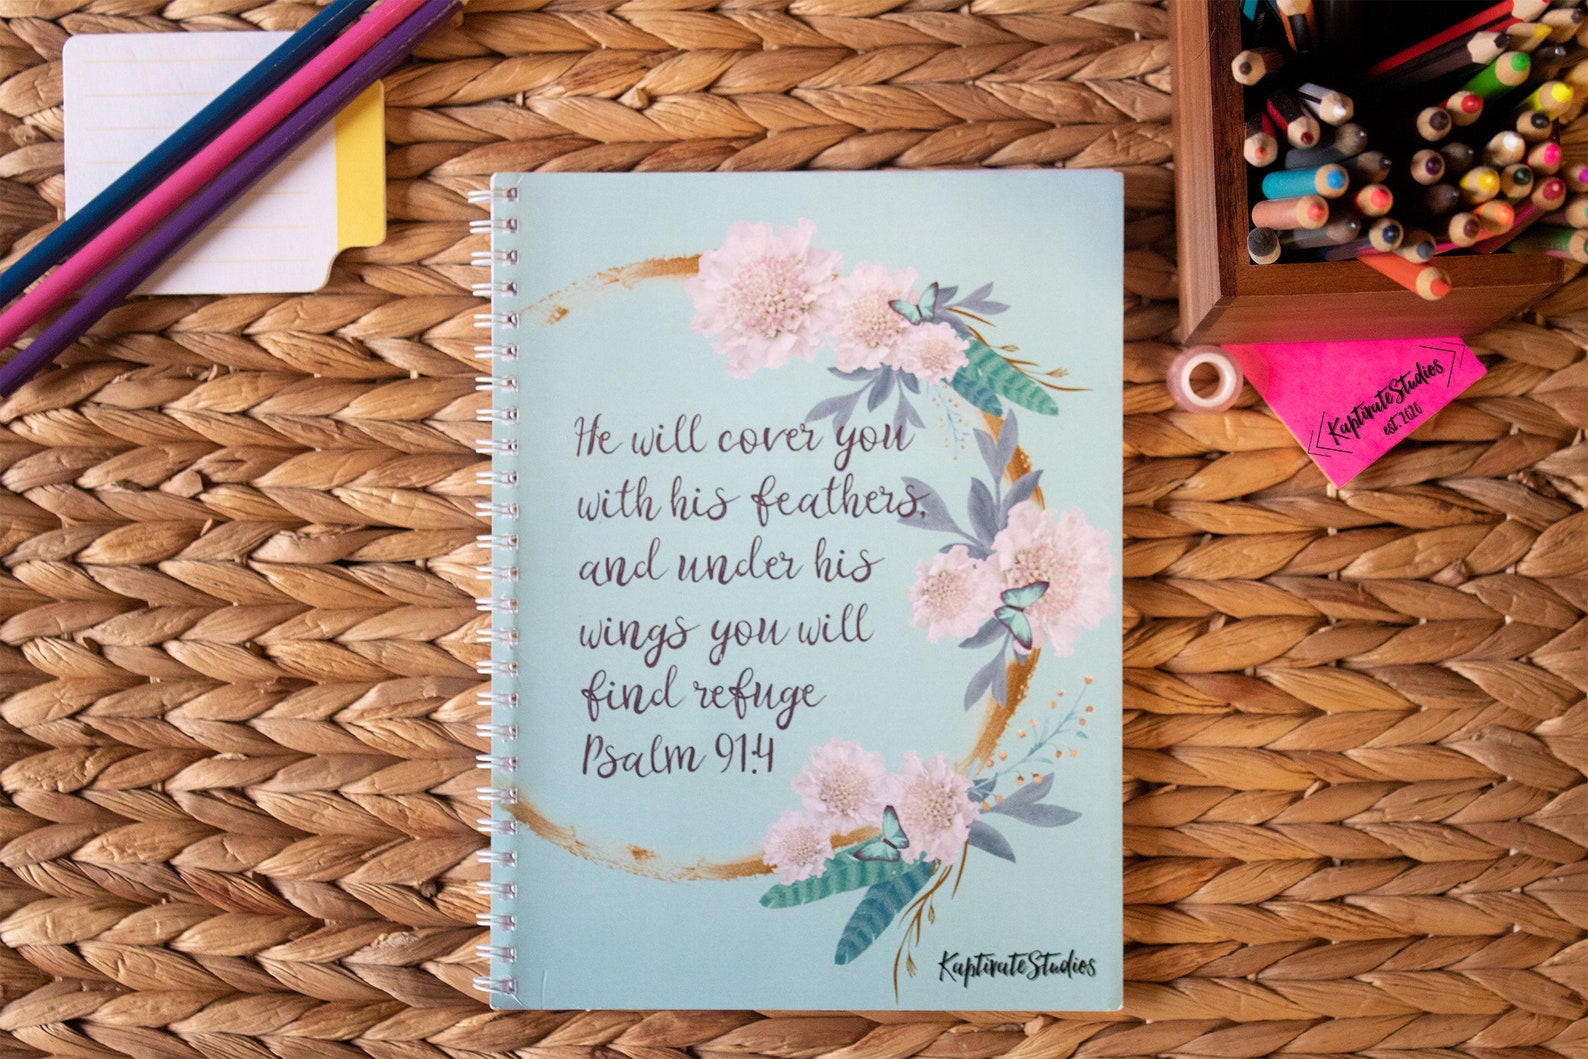 He will cover you
with his feathers,
and under his
wings you will
find refuge
Psalm 91:4
KaptivateStudios
KaptivateStudios
est. 2020